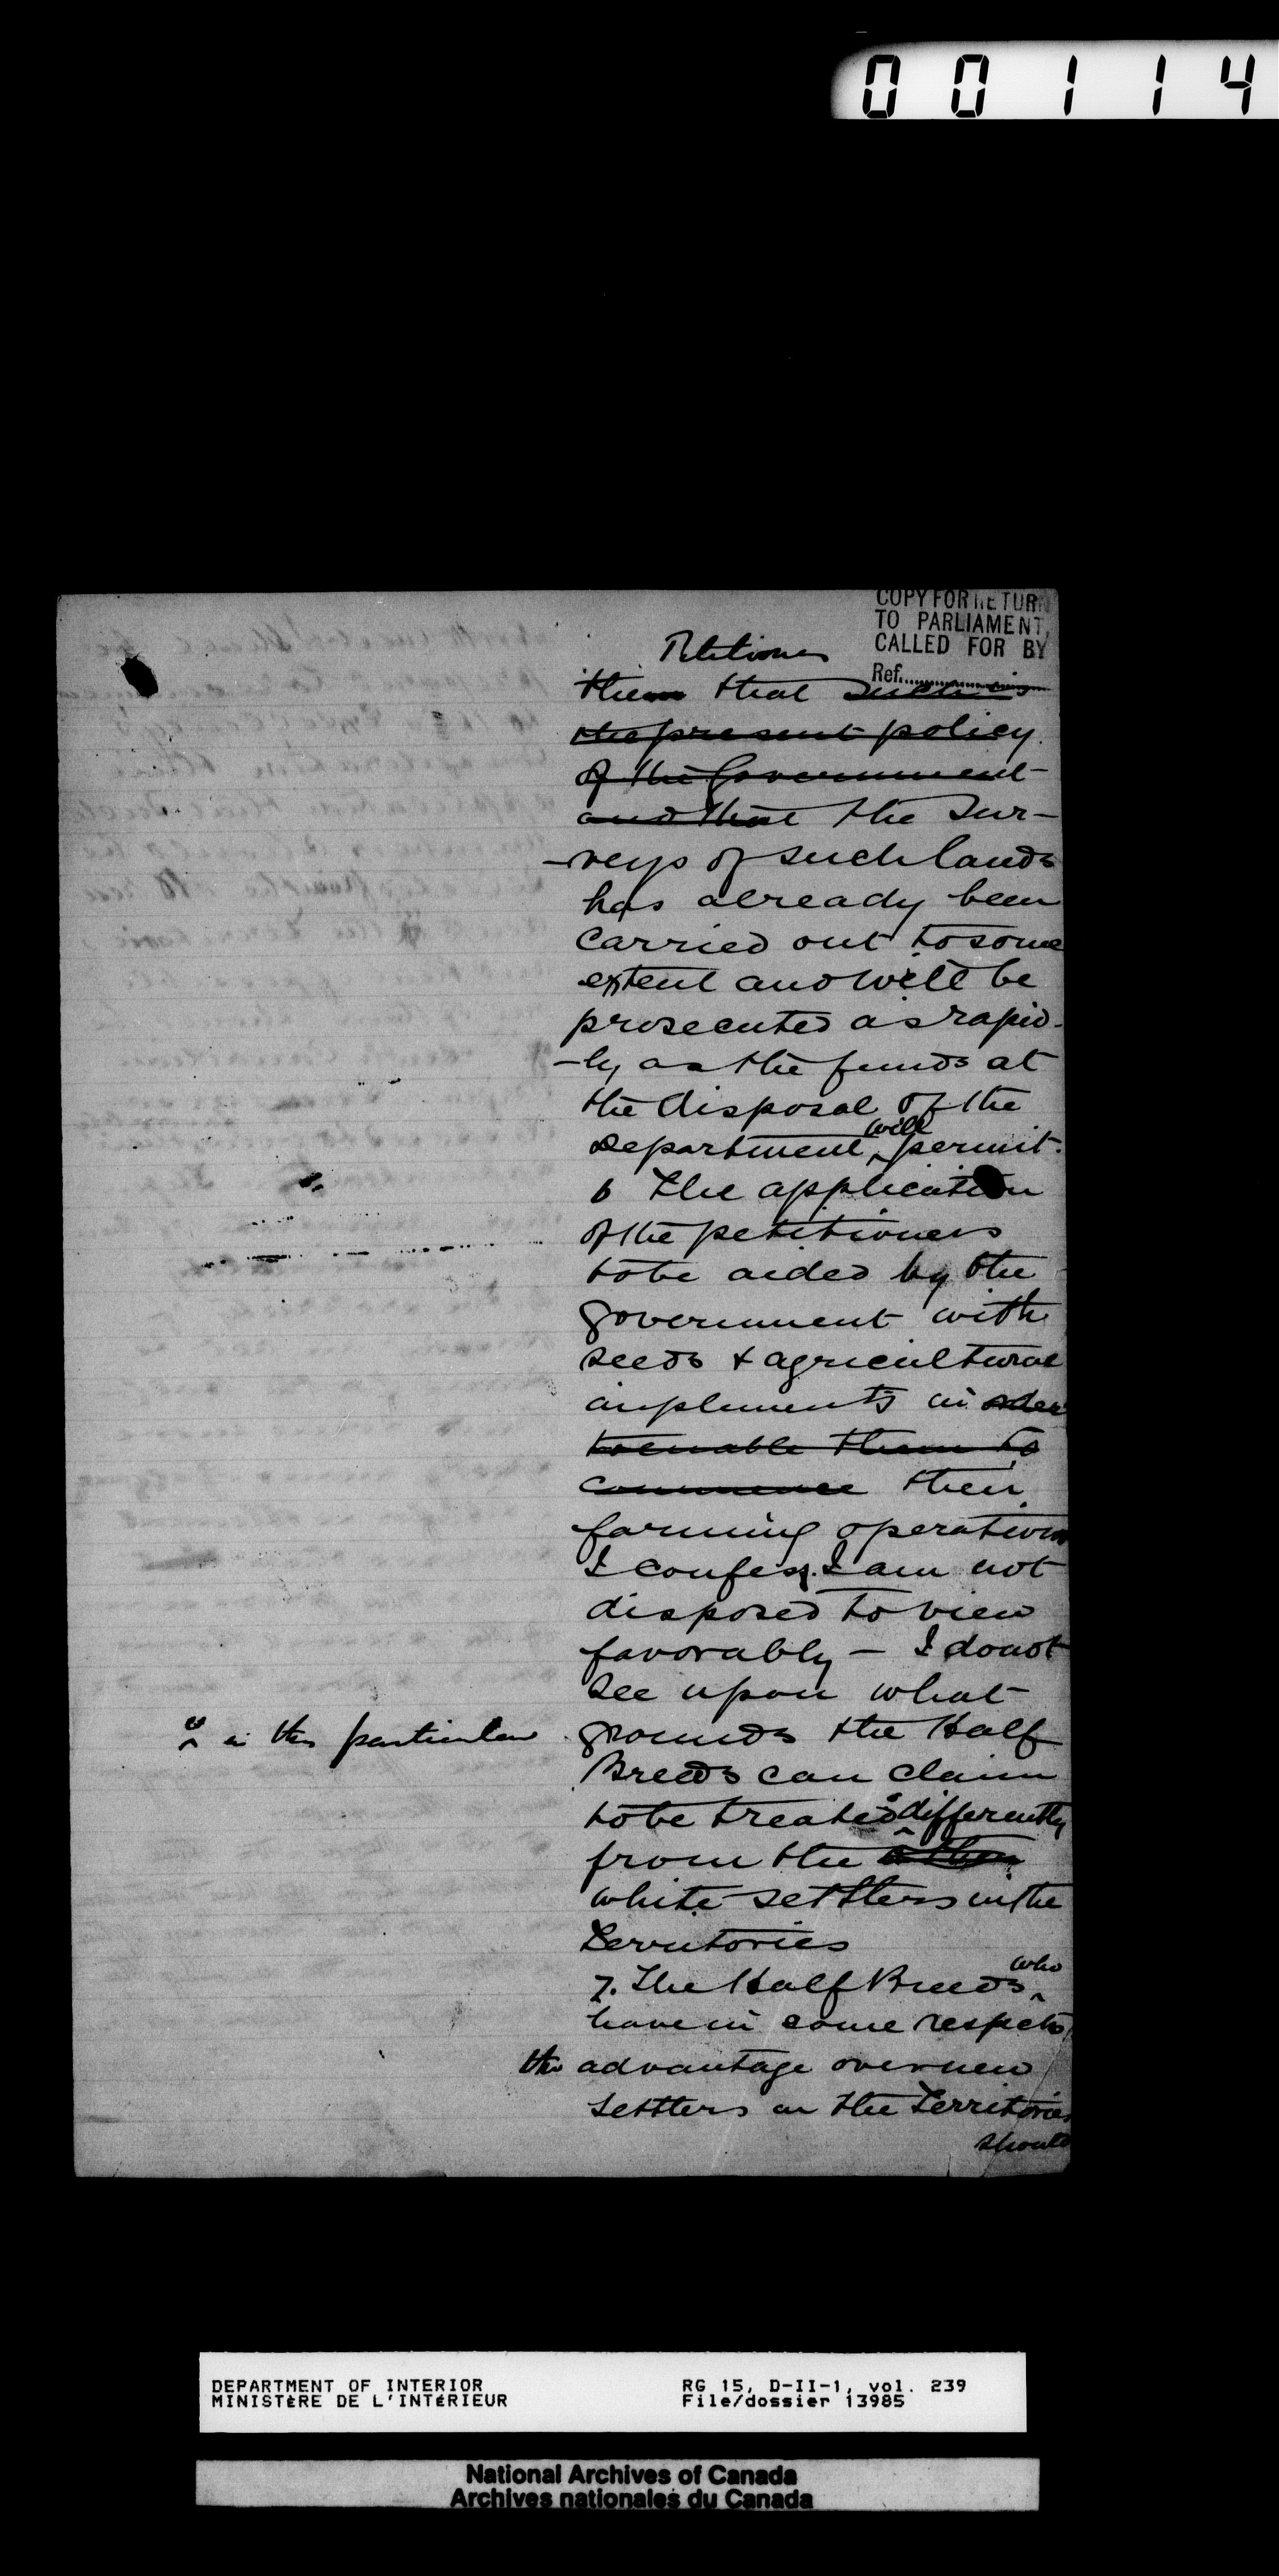 00114
COPY FOR RETURN
TO PARLIAMENT,
CALLED FOR BY
Ref.
Petitioners
them that such is
the present policy
of the Government
and that the Sur-
-veys of such lands
has already been
carried out to some
extent and will be
prosecuted as rapid-
-ly as the funds at
the disposal of the
will
Department permit.
6 The application
of the petitioners
to be aided by the
Government with
seeds & agricultural
implements in order
to enable them to
commence their
farming operations
I confess I am not
disposed to view
favorably - I do not
see upon what
grounds the Half
in this particular
Breeds can claim
to be treated differently
from the other
white settlers in the
Territories
who
7. The Half Breeds
have in some respects
the advantage over new
settlers in the Territories
should
DEPARTMENT OF INTERIOR
MINISTÈRE DE L'INTÉRIEUR
RG 15, D-II-1, vol. 239
File/dossier 13985
National Archives of Canada
Archives nationales du Canada